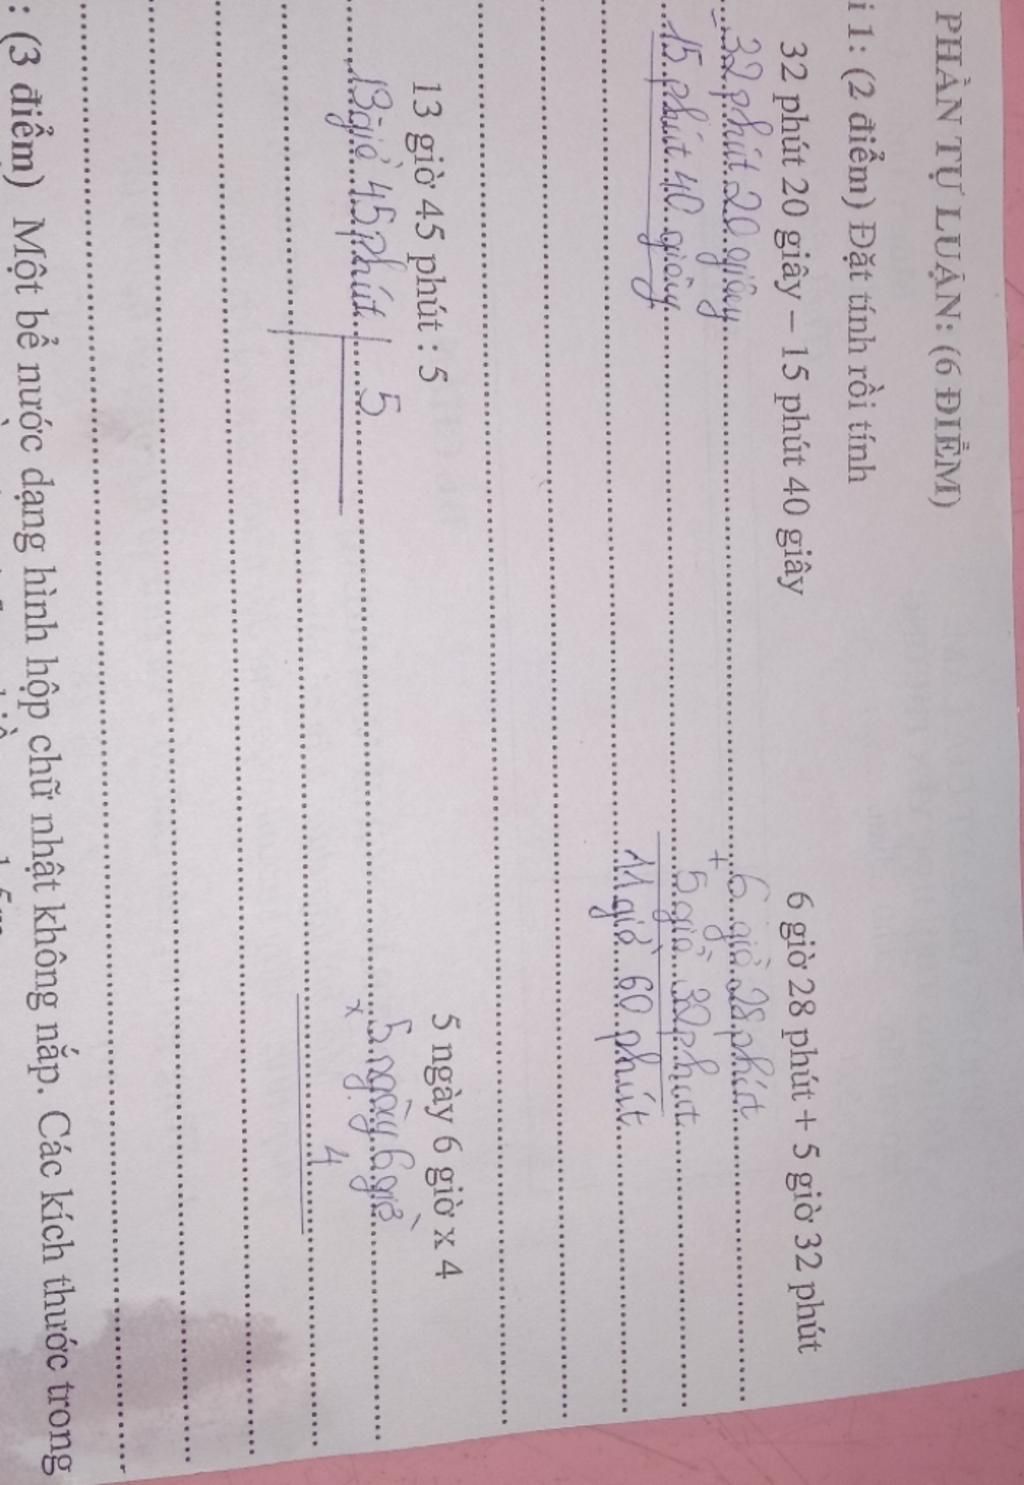 PHẦN TỰ LUẬN: (6 ĐIỂM)
i 1: (2 điểm) Đặt tính rồi tính
32 phút 20 giây – 15 phút 40 giây
6 giờ 28 phút + 5 giờ 32 phút
- 32 phút 20 giây
15 phút 40 giây
6 giờ 28 phút
+
5 giờ 32 phút
11 giờ 60 phút
13 giờ 45 phút : 5
5 ngày 6 giờ x 4
13 giờ 45 phút 5
5 ngày 6 giờ
x
4
: (3 điểm) Một bể nước dạng hình hộp chữ nhật không nắp. Các kích thước trong